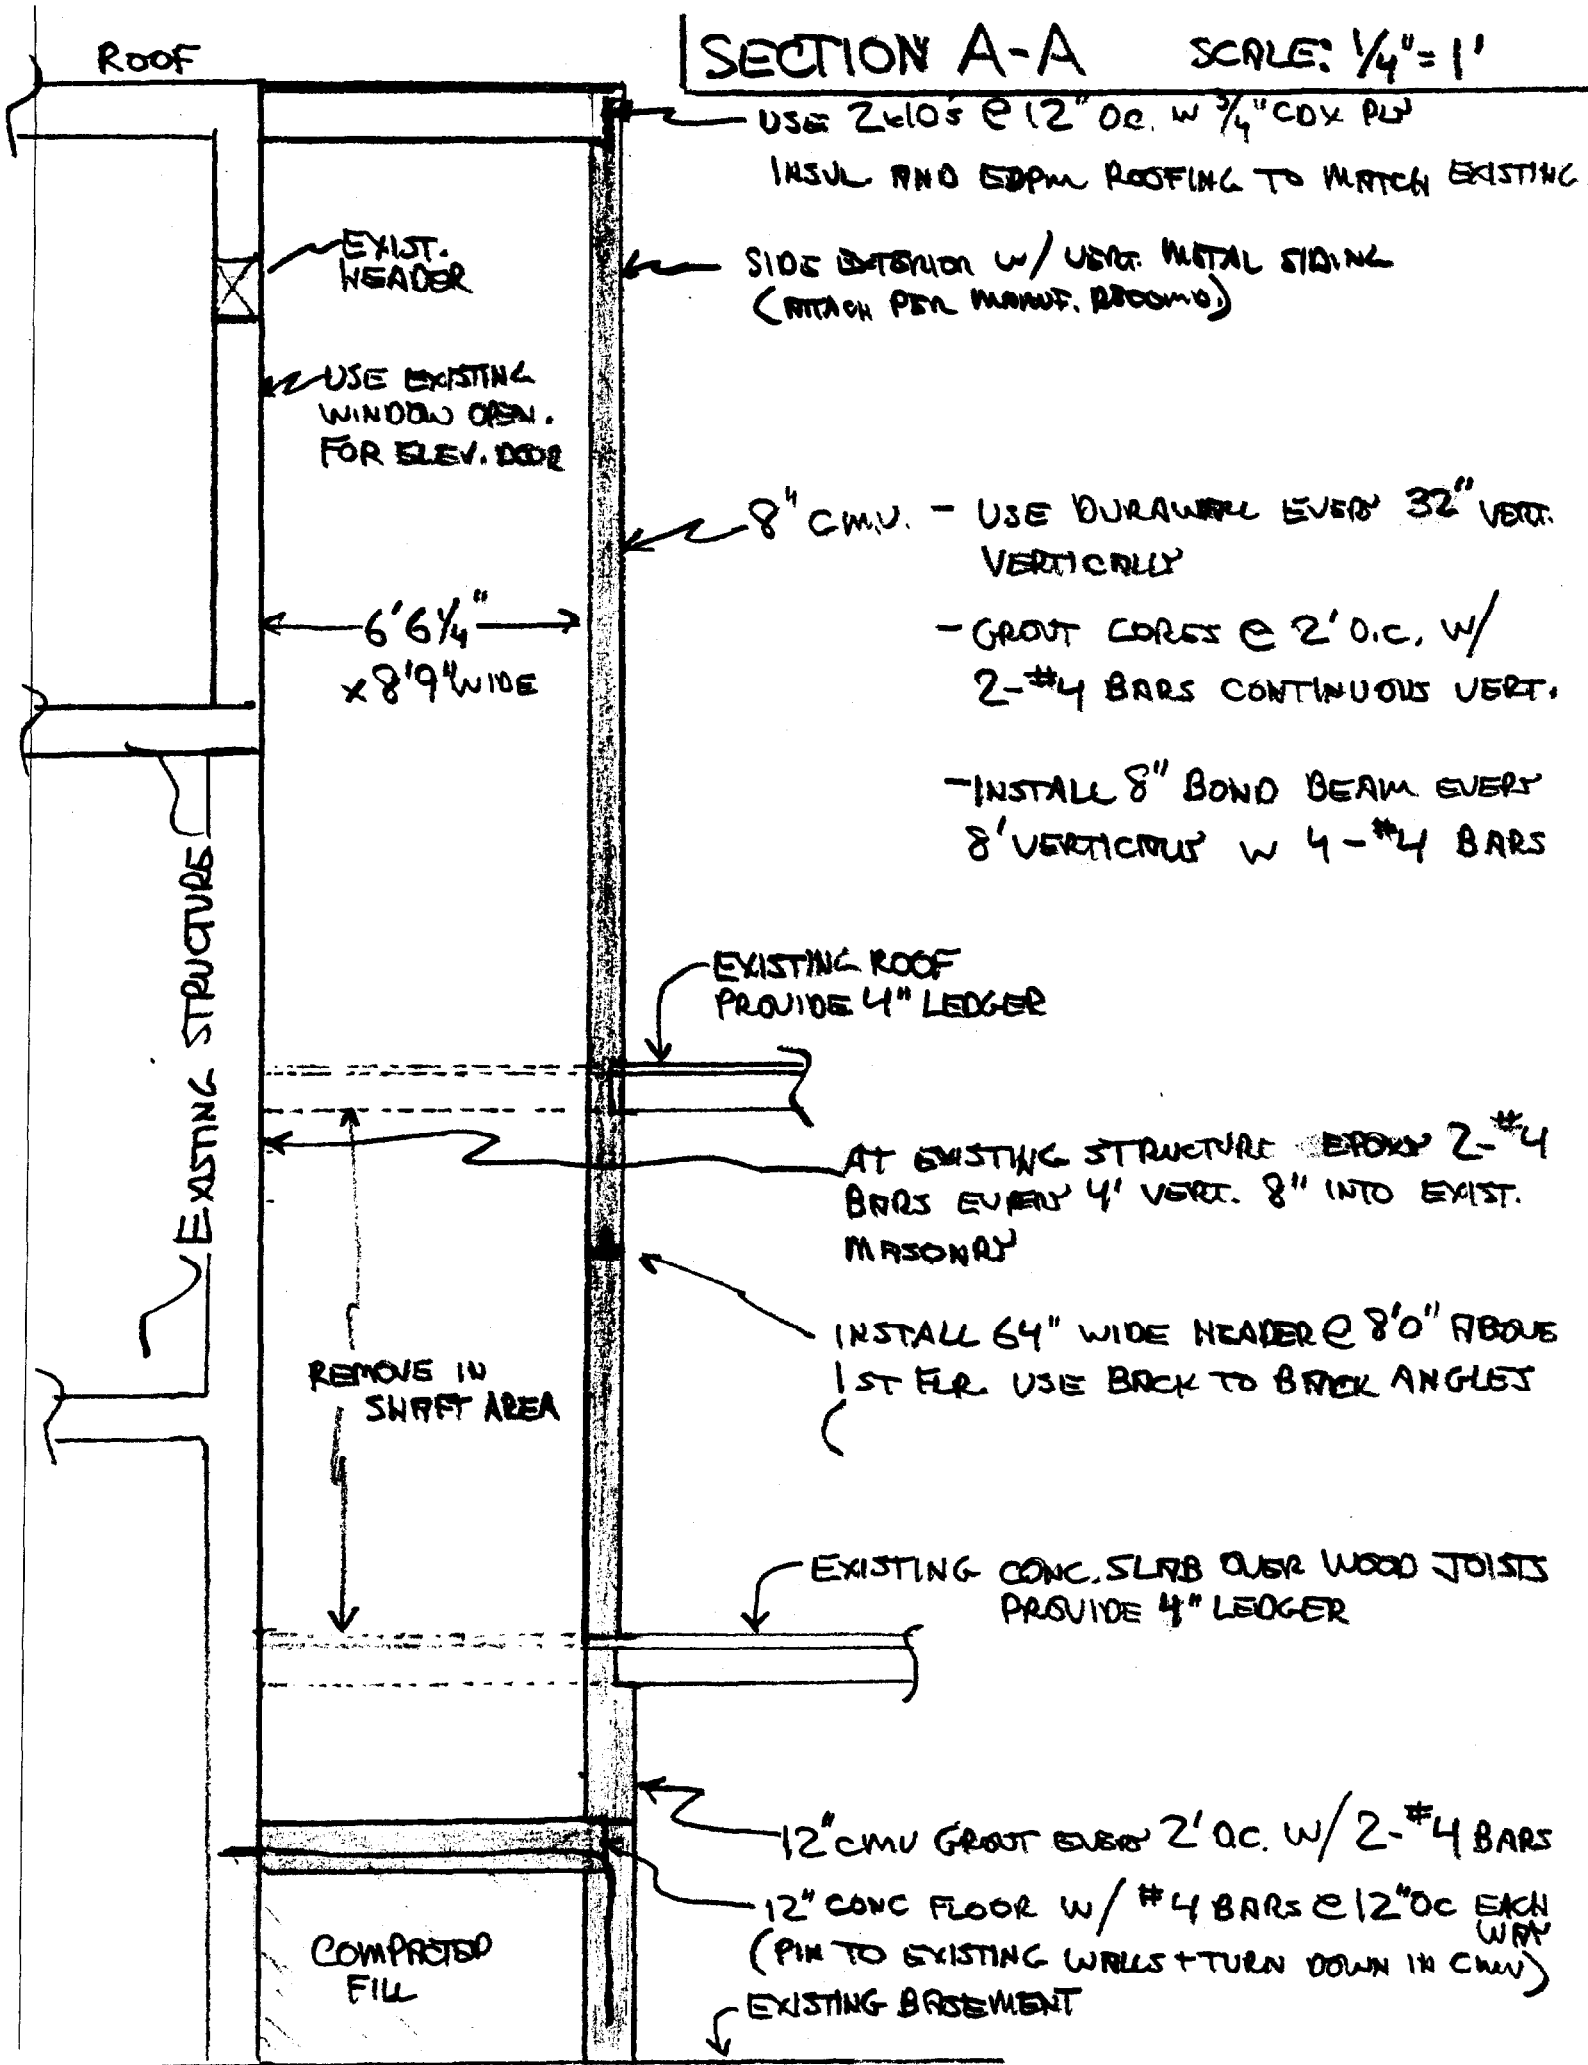 ROOF
SECTION A-A SCALE: 1/4" = 1'
USE 2x10's @ 12" O.C. W 3/4" CDX PLY
INSUL AND EDPM ROOFING TO MATCH EXISTING
EXIST.
HEADER
SIDE EXTERIOR W/ VERT. METAL SIDING
(ATTACH PER MANUF. RECOMD.)
USE EXISTING
WINDOW OPEN.
FOR ELEV. DOOR
8" C.M.U. - USE DURAWALL EVERY 32" VERT.
VERTICALLY
6'6 1/4"
x 8'9" WIDE
- GROUT CORES @ 2' O.C. W/
2-#4 BARS CONTINUOUS VERT.
- INSTALL 8" BOND BEAM EVERY
8' VERTICALLY W 4-#4 BARS
EXISTING STRUCTURE
EXISTING ROOF
PROVIDE 4" LEDGER
AT EXISTING STRUCTURE EPOXY 2-#4
BARS EVERY 4' VERT. 8" INTO EXIST.
MASONRY
INSTALL 64" WIDE HEADER @ 8'0" ABOVE
1ST FLR. USE BACK TO BACK ANGLES
REMOVE IN
SHAFT AREA
EXISTING CONC. SLAB OVER WOOD JOISTS
PROVIDE 4" LEDGER
12" CMU GROUT EVERY 2' O.C. W/ 2-#4 BARS
12" CONC FLOOR W/ #4 BARS @ 12" OC EACH
WAY
(PIN TO EXISTING WALLS + TURN DOWN IN CMU)
COMPACTED
FILL
EXISTING BASEMENT